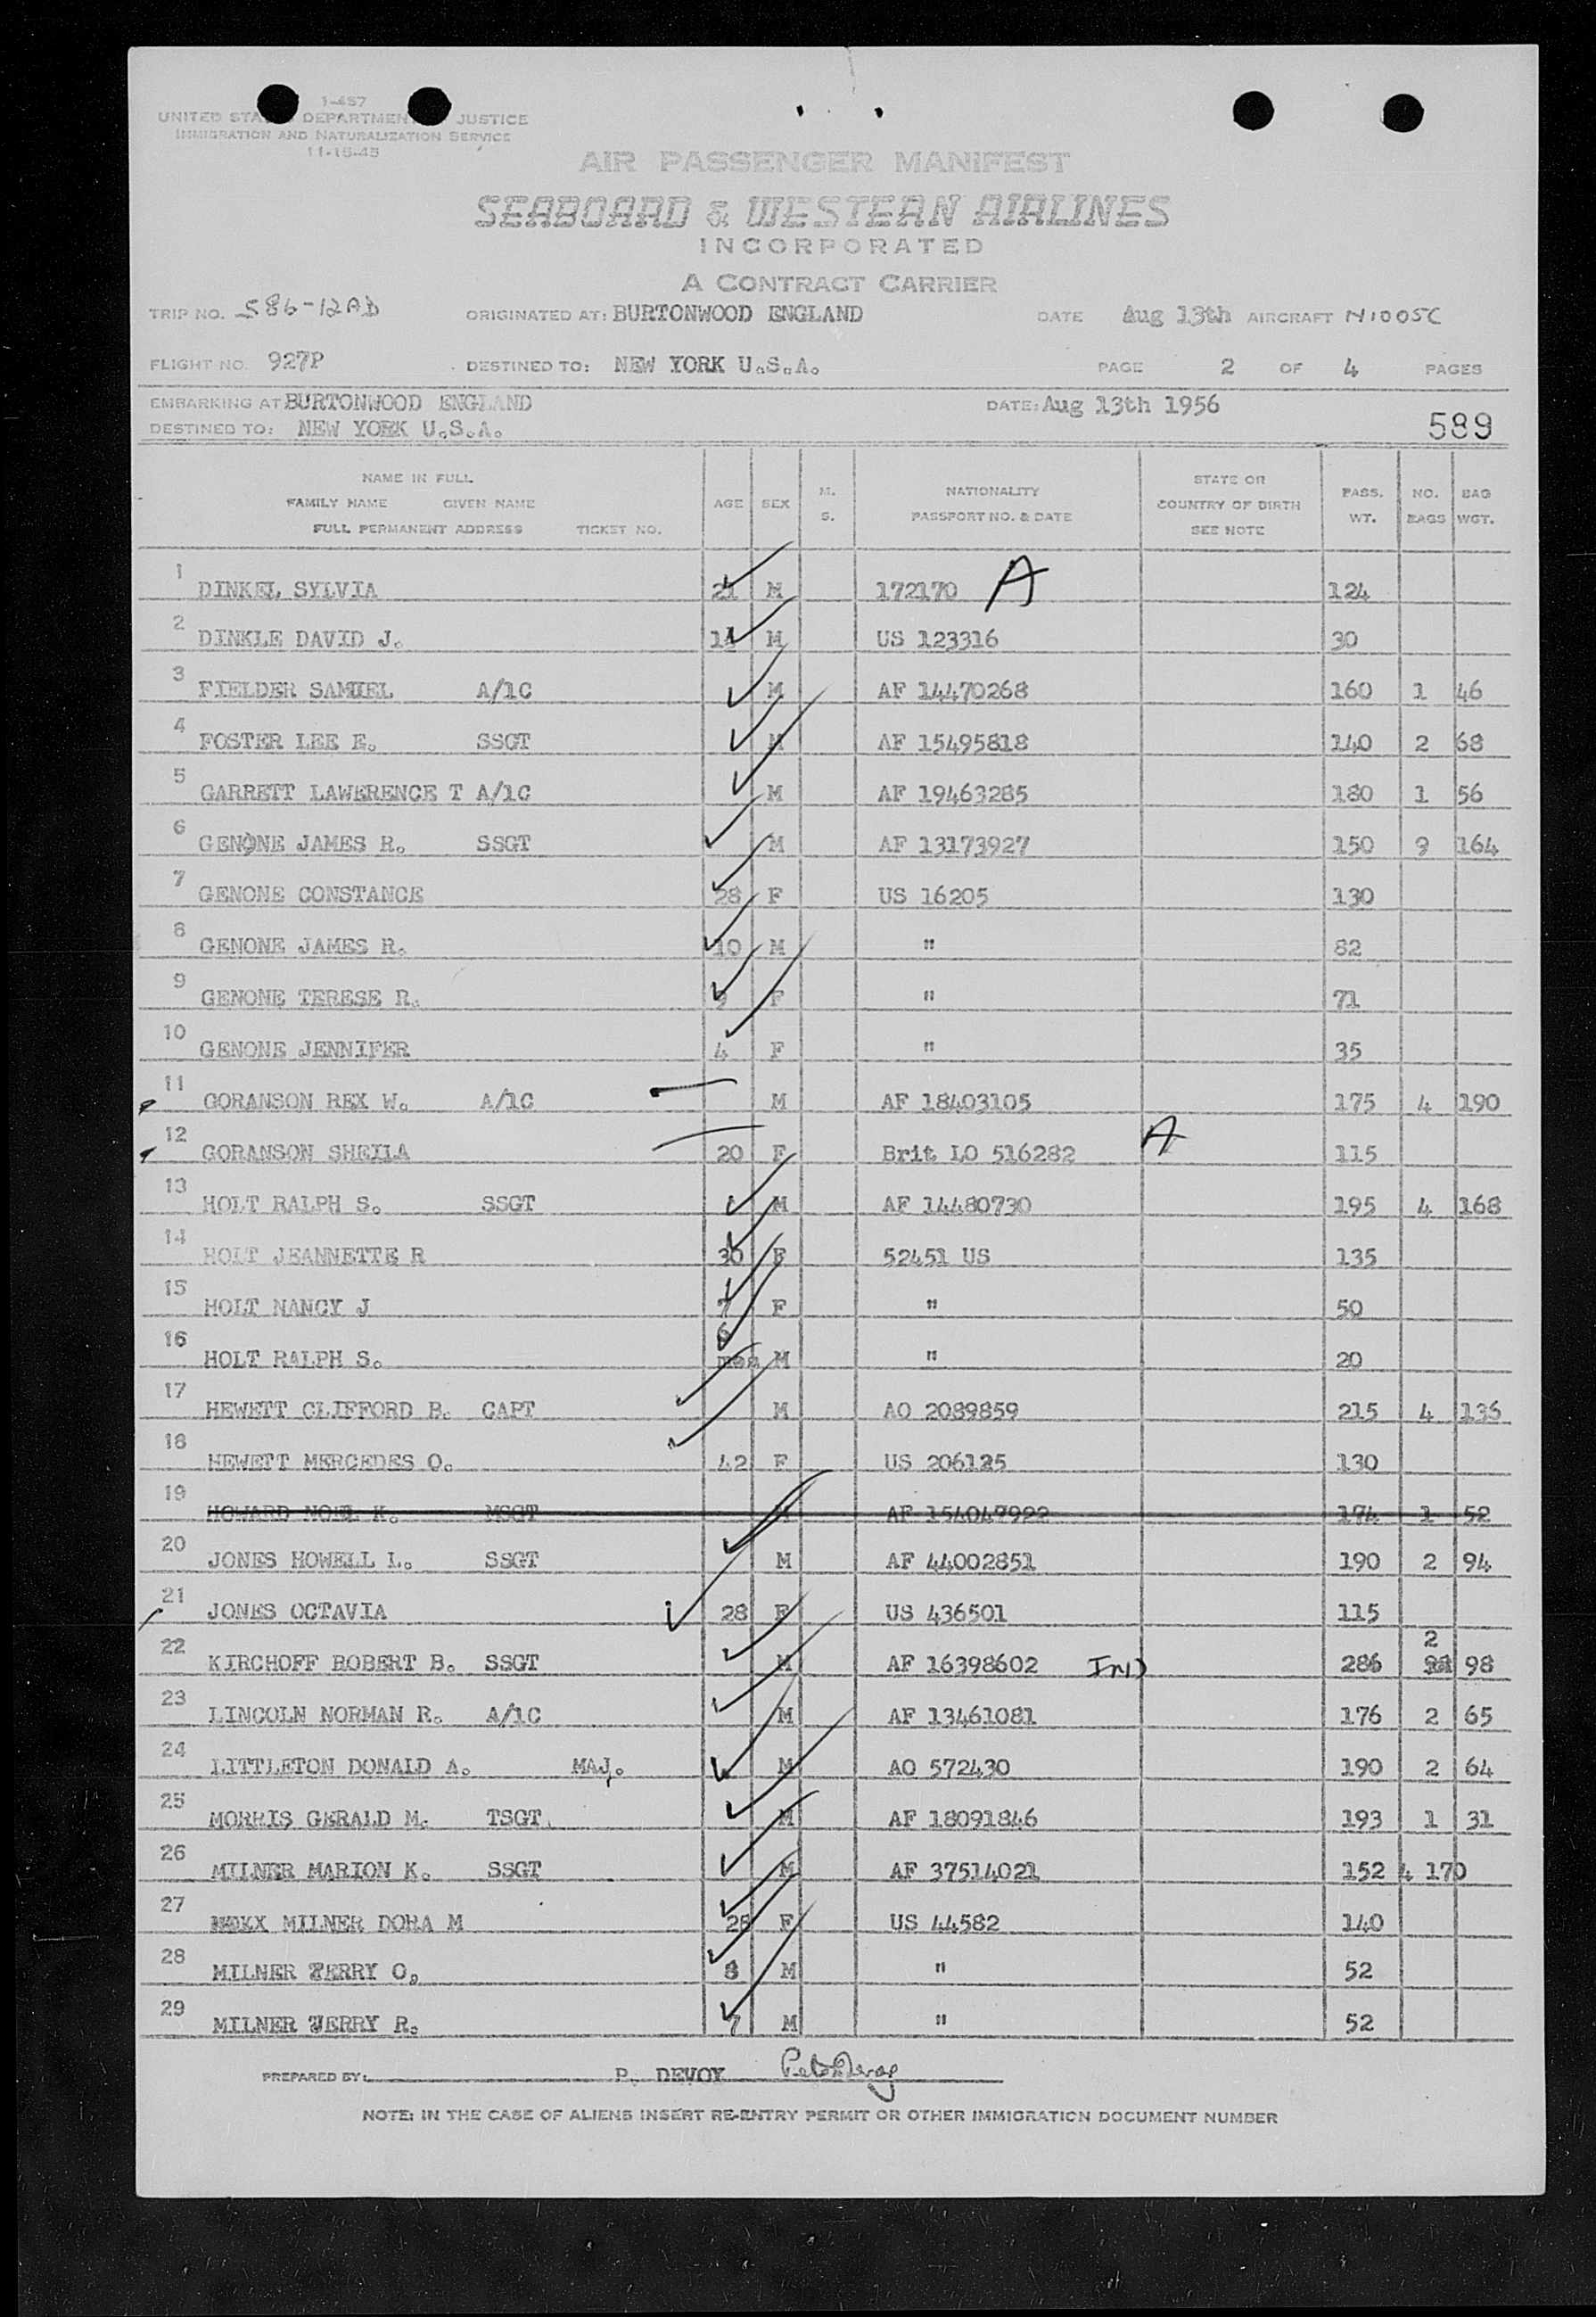 1-457
UNITED STA DEPARTMEN JUSTICE
IMMIGRATION AND NATURALIZATION SERVICE
11-15-45
AIR PASSENGER MANIFEST
SEABOARD & WESTERN AIRLINES
INCORPORATED
A CONTRACT CARRIER
TRIP NO. S86-12AD ORIGINATED AT: BURTONWOOD ENGLAND DATE Aug 13th AIRCRAFT N1005C
FLIGHT NO. 927P DESTINED TO: NEW YORK U.S.A. PAGE 2 OF 4 PAGES
EMBARKING AT BURTONWOOD ENGLAND DATE: Aug 13th 1956
DESTINED TO: NEW YORK U.S.A. 589
NAME IN FULL
FAMILY NAME GIVEN NAME
FULL PERMANENT ADDRESS TICKET NO.
AGE SEX M. S. NATIONALITY PASSPORT NO. & DATE STATE OR COUNTRY OF BIRTH SEE NOTE PASS. WT. NO. BAGS BAG WGT.
1 DINKEL SYLVIA 21 M 172170 A 124
2 DINKLE DAVID J. 14 M US 123316 30
3 FIELDER SAMUEL A/1C M AF 14470268 160 1 46
4 FOSTER LEE E. SSGT M AF 15495818 140 2 68
5 GARRETT LAWERENCE T A/1C M AF 19463285 180 1 56
6 GENONE JAMES R. SSGT M AF 13173927 150 9 164
7 GENONE CONSTANCE 28 F US 16205 130
8 GENONE JAMES R. 10 M " 82
9 GENONE TERESE R. 9 F " 71
10 GENONE JENNIFER 4 F " 35
11 GORANSON REX W. A/1C M AF 18403105 175 4 190
12 GORANSON SHEILA 20 F Brit LO 516282 A 115
13 HOLT RALPH S. SSGT M AF 14480730 195 4 168
14 HOLT JEANNETTE R 30 F 52451 US 135
15 HOLT NANCY J 7 F " 50
16 HOLT RALPH S. M " 20
17 HEWETT CLIFFORD B. CAPT M AO 2089859 215 4 136
18 HEWETT MERCEDES O. 42 F US 206125 130
19 HOWARD NOEL K. MSGT M AF 154047922 174 1 52
20 JONES HOWELL L. SSGT M AF 44002851 190 2 94
21 JONES OCTAVIA 28 F US 436501 115
22 KIRCHOFF ROBERT B. SSGT M AF 16398602 IND 286 2 98
23 LINCOLN NORMAN R. A/1C M AF 13461081 176 2 65
24 LITTLETON DONALD A. MAJ. M AO 572430 190 2 64
25 MORRIS GERALD M. TSGT. M AF 18091846 193 1 31
26 MILNER MARION K. SSGT M AF 37514021 152 4 170
27 MILNER DORA M 28 F US 44582 140
28 MILNER TERRY O. 8 M " 52
29 MILNER JERRY R. 7 M " 52
PREPARED BY: P. DEVOY Peter Devoy
NOTE: IN THE CASE OF ALIENS INSERT RE-ENTRY PERMIT OR OTHER IMMIGRATION DOCUMENT NUMBER